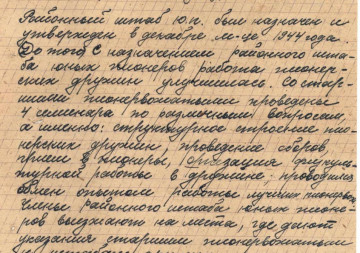 Районный штаб ю.п. был назначен и
утвержден в декабре м-це 1944 года.
До того с назначением районного шта-
ба юных пионеров работа пионер-
ских дружин улучшилась. Со стар-
шими пионервожатыми проведены
4 семенара по различным вопросам,
а именно: структурное строение пио-
нерских дружин, проведение сборов,
прием в пионеры, организация физкуль-
турной работы в дружине. проводился
обмен опытом работы лучших пионервож.
Члены районного штаба юных пионе-
ров выезжают на места, где дают
указания старшим пионервожатым